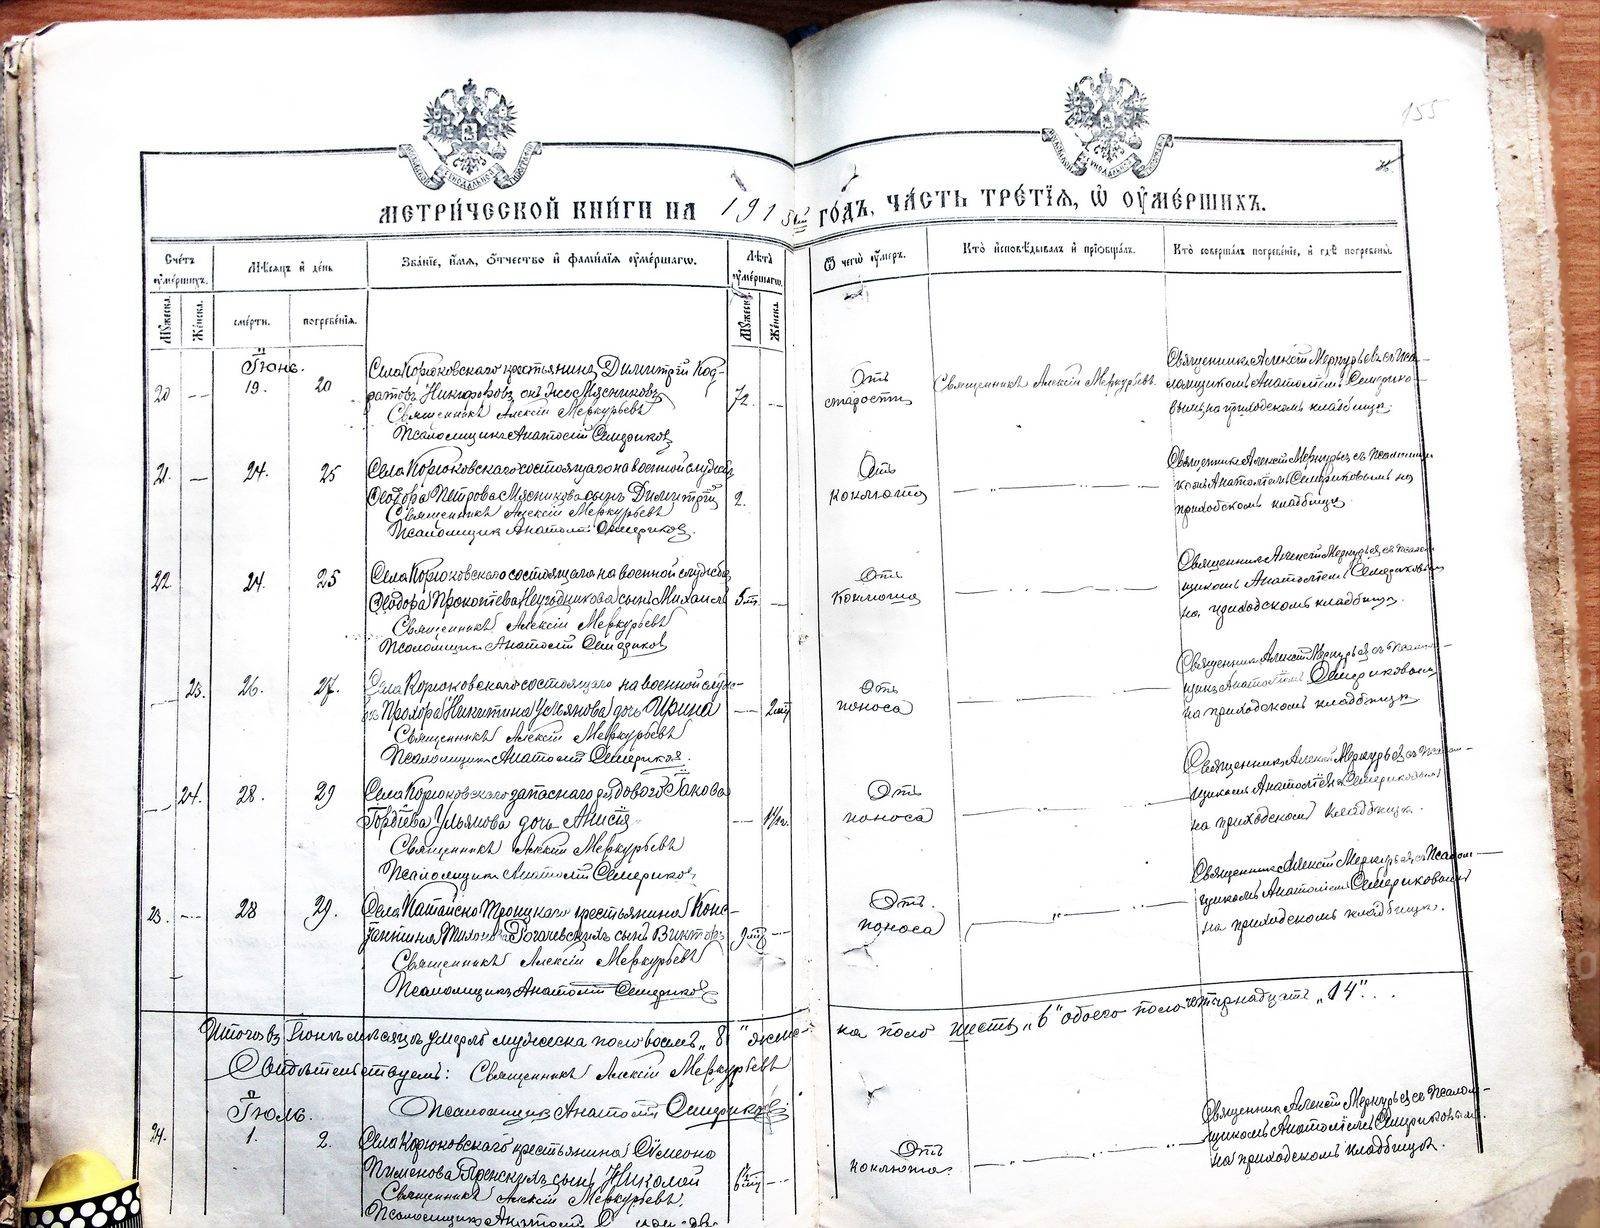 155
МЕТРИ́ЧЕСКОЙ КНИ́ГИ НА 1915ый ГО́ДЪ, ЧА́СТЬ ТРЕ́ТІЯ, Ѡ ОУМЕ́РШИХЪ.
Сче́тъ оуме́ршихъ.
Мѣ́сяцъ и де́нь
Зва́ніе, и́мя, о́тчество и фами́лія оуме́ршагѡ.
Лѣ́та оуме́ршагѡ.
Ѿ чегѡ̀ оу́меръ.
Кто̀ исповѣ́дывалъ и пріобща́лъ.
Кто̀ соверша́лъ погребе́ніе, и гдѣ̀ погребены̀.
Му́жеска. Же́нска. сме́рти. погребе́нія. Му́жеска. Же́нска.
Іюнь.
20 19. 20
Села Корюковскаго крестьянинъ Димитрій Код-
ратовъ Никифоровъ онъ же Мясниковъ
72.
Священникъ Алексій Меркурьевъ
Псаломщикъ Анатолій Семериковъ
Отъ
старости
Священникъ Алексій Меркурьевъ
Священникъ Алексій Меркурьевъ съ пса-
ломщикомъ Анатоліемъ Семерико-
вымъ на приходскомъ кладбищѣ.
21. 24. 25
Села Корюковскаго состоящаго на военной службѣ
Ѳеодора Петрова Мясникова сынъ Димитрій
2.
Священникъ Алексій Меркурьевъ
Псаломщикъ Анатолій Семериковъ.
Отъ
коклюша
Священникъ Алексій Меркурьевъ съ псаломщи-
комъ Анатоліемъ Семериковымъ на
приходскомъ кладбищѣ
22 24. 25
Села Корюковскаго состоящаго на военной службѣ
Ѳеодора Прокопьева сынъ Михаилъ
5 м.
Священникъ Алексій Меркурьевъ
Псаломщикъ Анатолій Семериковъ
Отъ
коклюша
Священникъ Алексій Меркурьевъ съ псалом-
щикомъ Анатоліемъ Семериковымъ
на приходскомъ кладбищѣ.
23. 26. 27.
Села Корюковскаго состоящаго на военной служ-
бѣ Прохора Никитина Ульянова дочь Ирина
2 м.
Священникъ Алексій Меркурьевъ
Псаломщикъ Анатолій Семериковъ.
Отъ
поноса
Священникъ Алексій Меркурьевъ съ псалом-
щикъ Анатоліемъ Семериковымъ
на приходскомъ кладбищѣ
24. 28. 29
Села Корюковскаго запаснаго рядового Іакова
Гордѣева Ульянова дочь Анисія
Священникъ Алексій Меркурьевъ
Псаломщикъ Анатолій Семериковъ
Отъ
поноса
Священникъ Алексій Меркурьевъ съ псалом-
щикомъ Анатоліемъ Семериковымъ
на приходскомъ кладбищѣ.
23. 28 29.
Села Катайско Троицкаго крестьянина Конс-
тантина Тихонова Рогачевскихъ сынъ Викторъ
9 м.
Священникъ Алексій Меркурьевъ
Псаломщикъ Анатолій Семериковъ
Отъ
поноса
Священникъ Алексій Меркурьевъ съ псалом-
щикомъ Анатоліемъ Семериковымъ
на приходскомъ кладбищѣ.
Итого въ Іюнѣ мѣсяцѣ умерло мужеска пола восемь „8" женс-
ка пола шесть „6" обоего пола четырнадцать „14".
Свидѣтельствуемъ: Священникъ Алексій Меркурьевъ
Псаломщикъ Анатолій Семериковъ
Іюль.
24. 1. 2.
Села Корюковскаго крестьянина Симеона
Пименова сынъ Николай
6 м.
Священникъ Алексій Меркурьевъ.
Псаломщикъ Анатолій
Отъ
коклюша.
Священникъ Алексій Меркурьевъ съ псалом-
щикомъ Анатоліемъ Семериковымъ
на приходскомъ кладбищѣ.